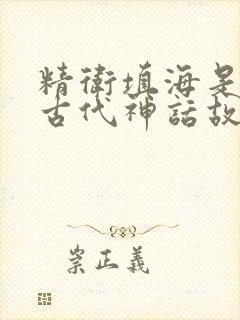 精衛填海是
古代神話故
崇正義